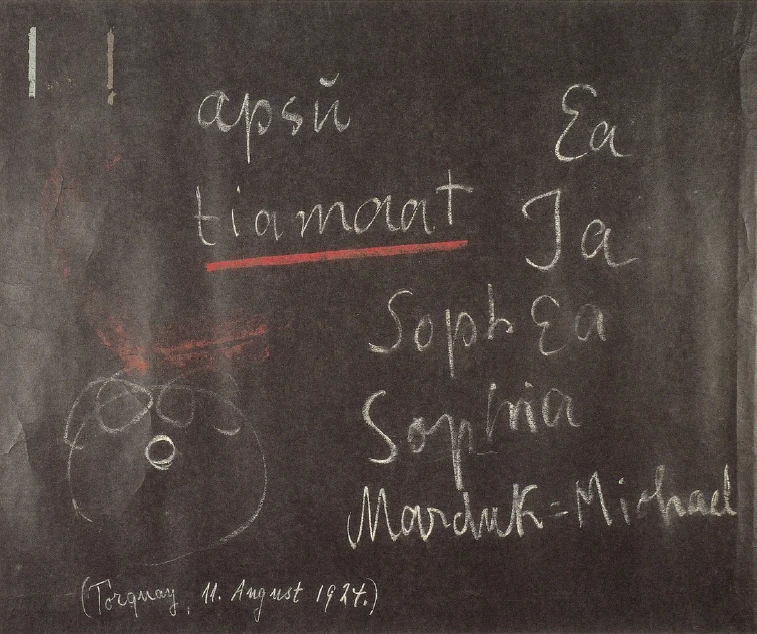 apsŭ
tiamaat
Ea
Ja
Soph Ea
Sophia
Marduk = Michael
(Torquay, 11. August 1924.)